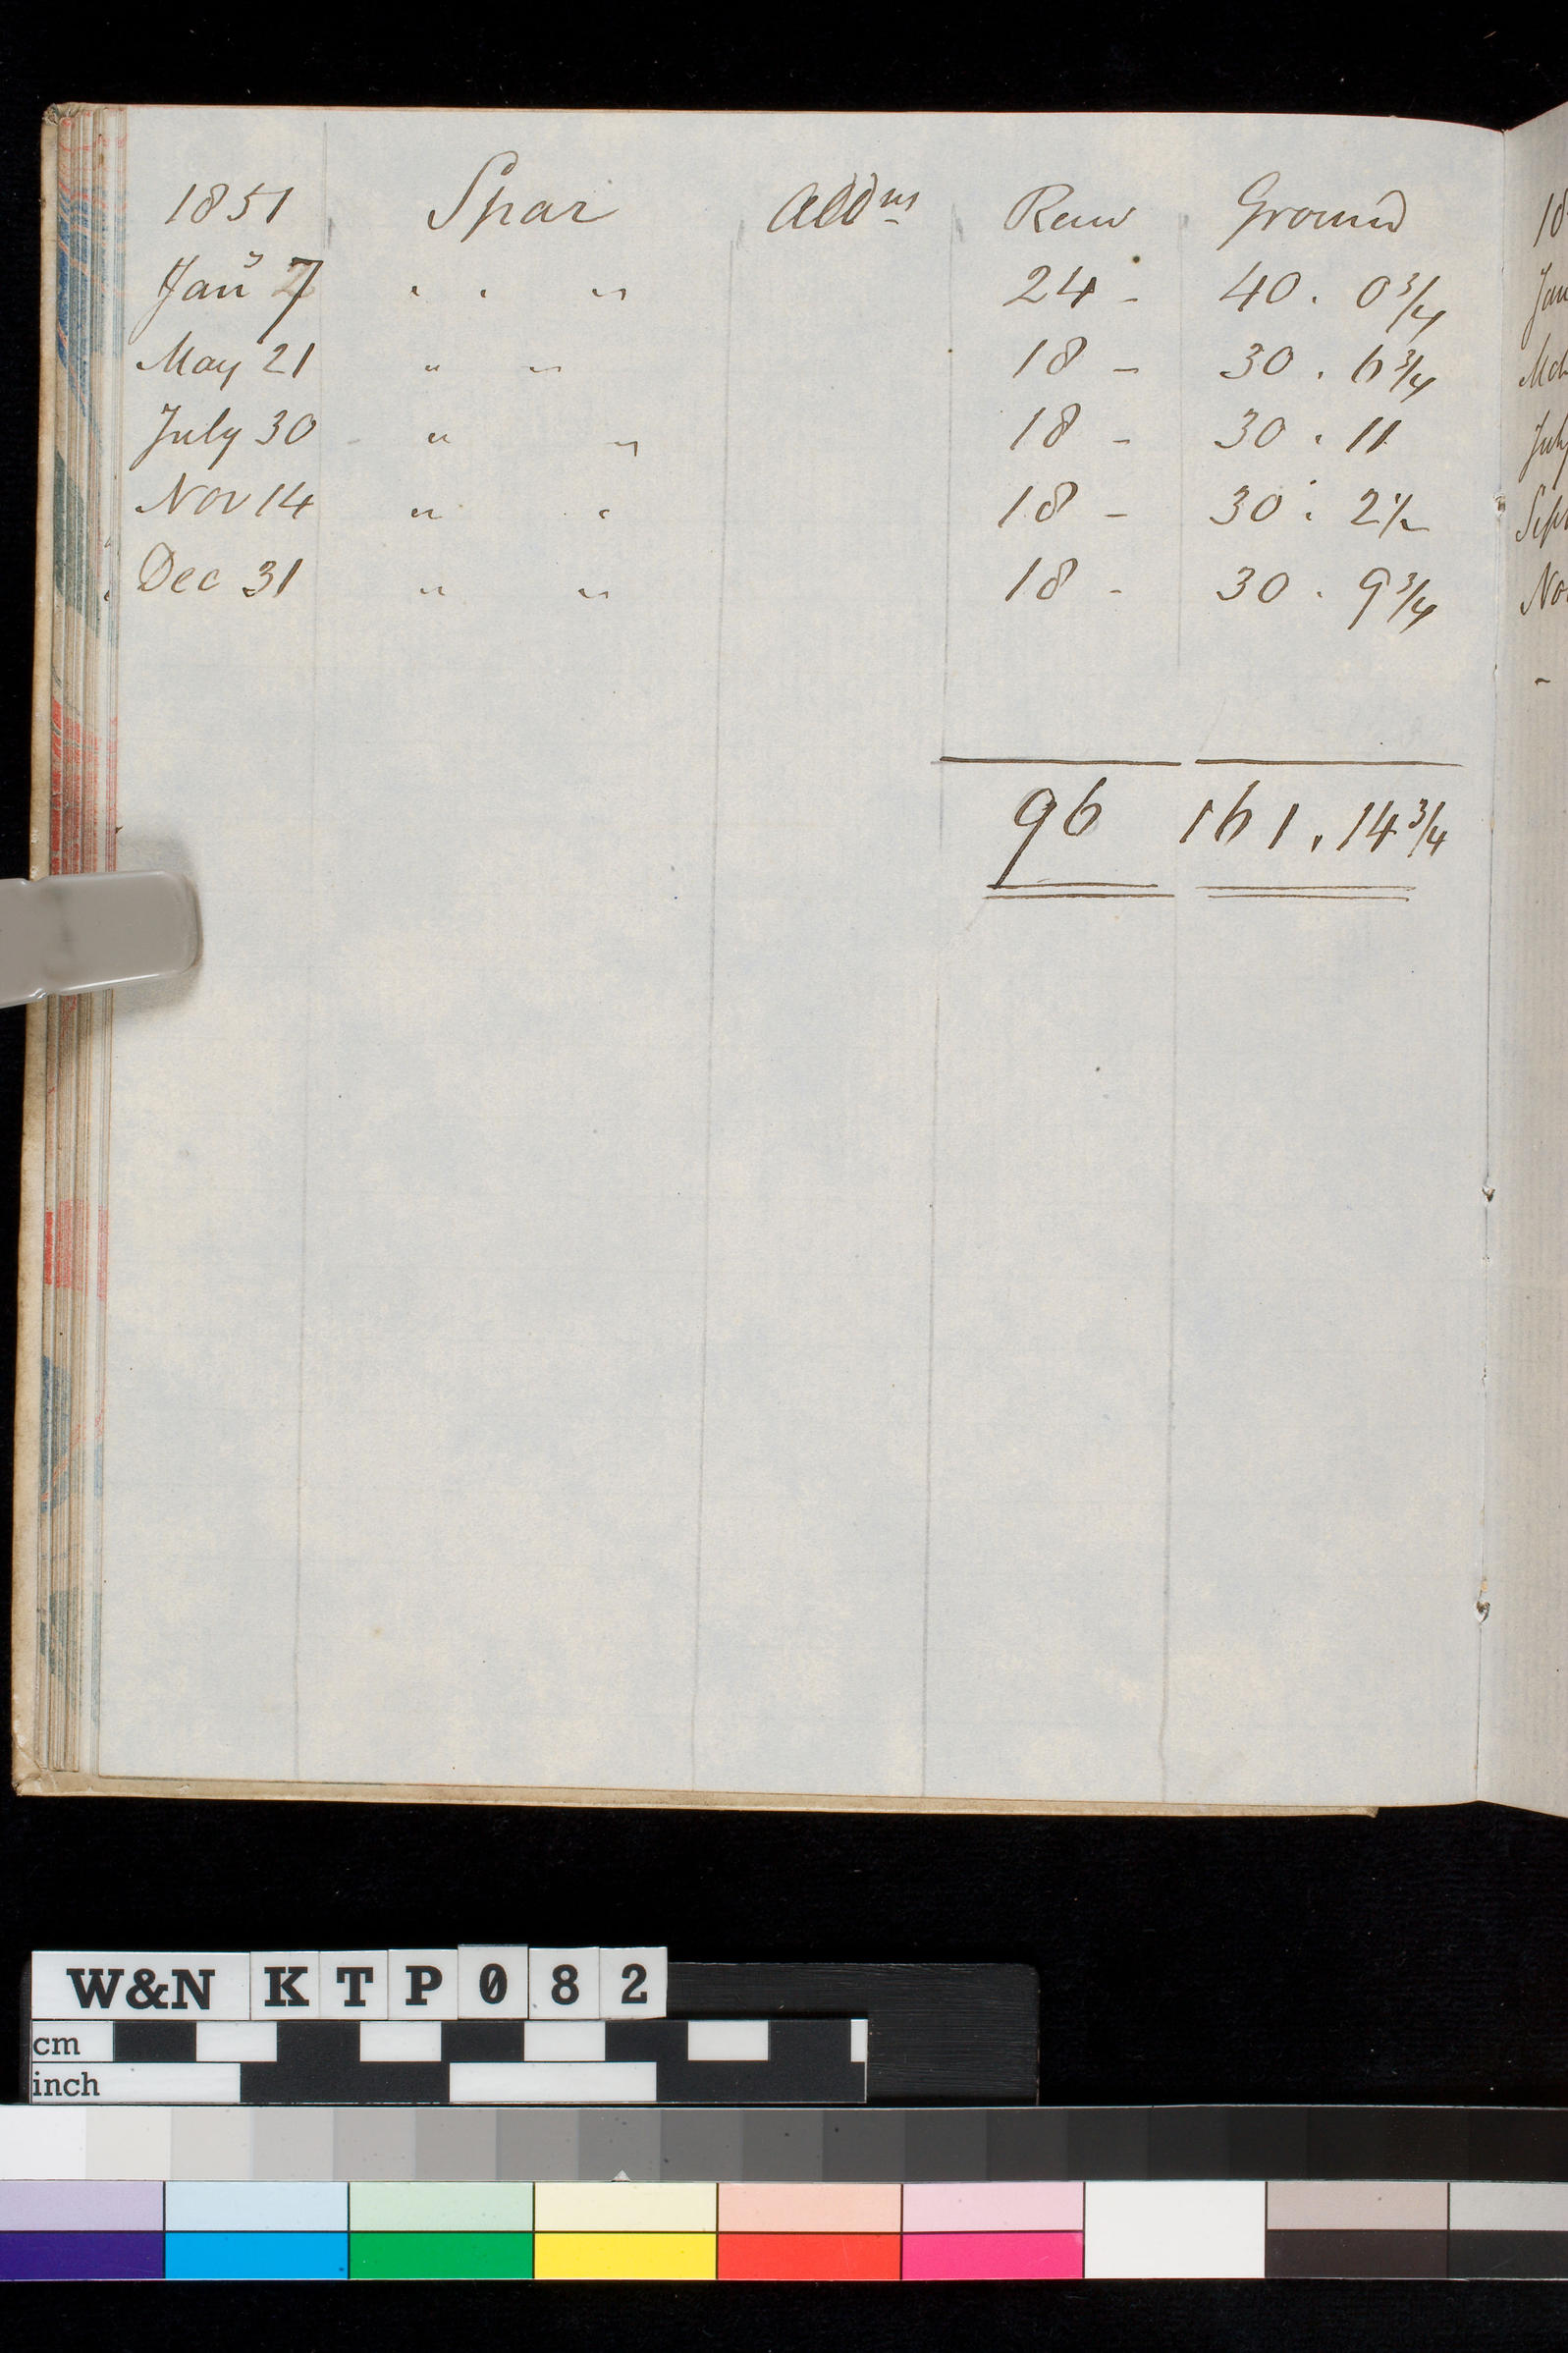 1851 Spar Addns Raw Ground
Jany 7 " " " 24 - 40 . 0 3/4
May 21 " " 18 - 30 . 6 3/4
July 30 " " 18 - 30 . 11
Nov 14 " " 18 - 30 . 2 1/2
Dec 31 " " 18 - 30 . 9 3/4
96 161 . 14 3/4
18
Jan
Mch
July
Sept
Nov
W&N KTP082
cm
inch